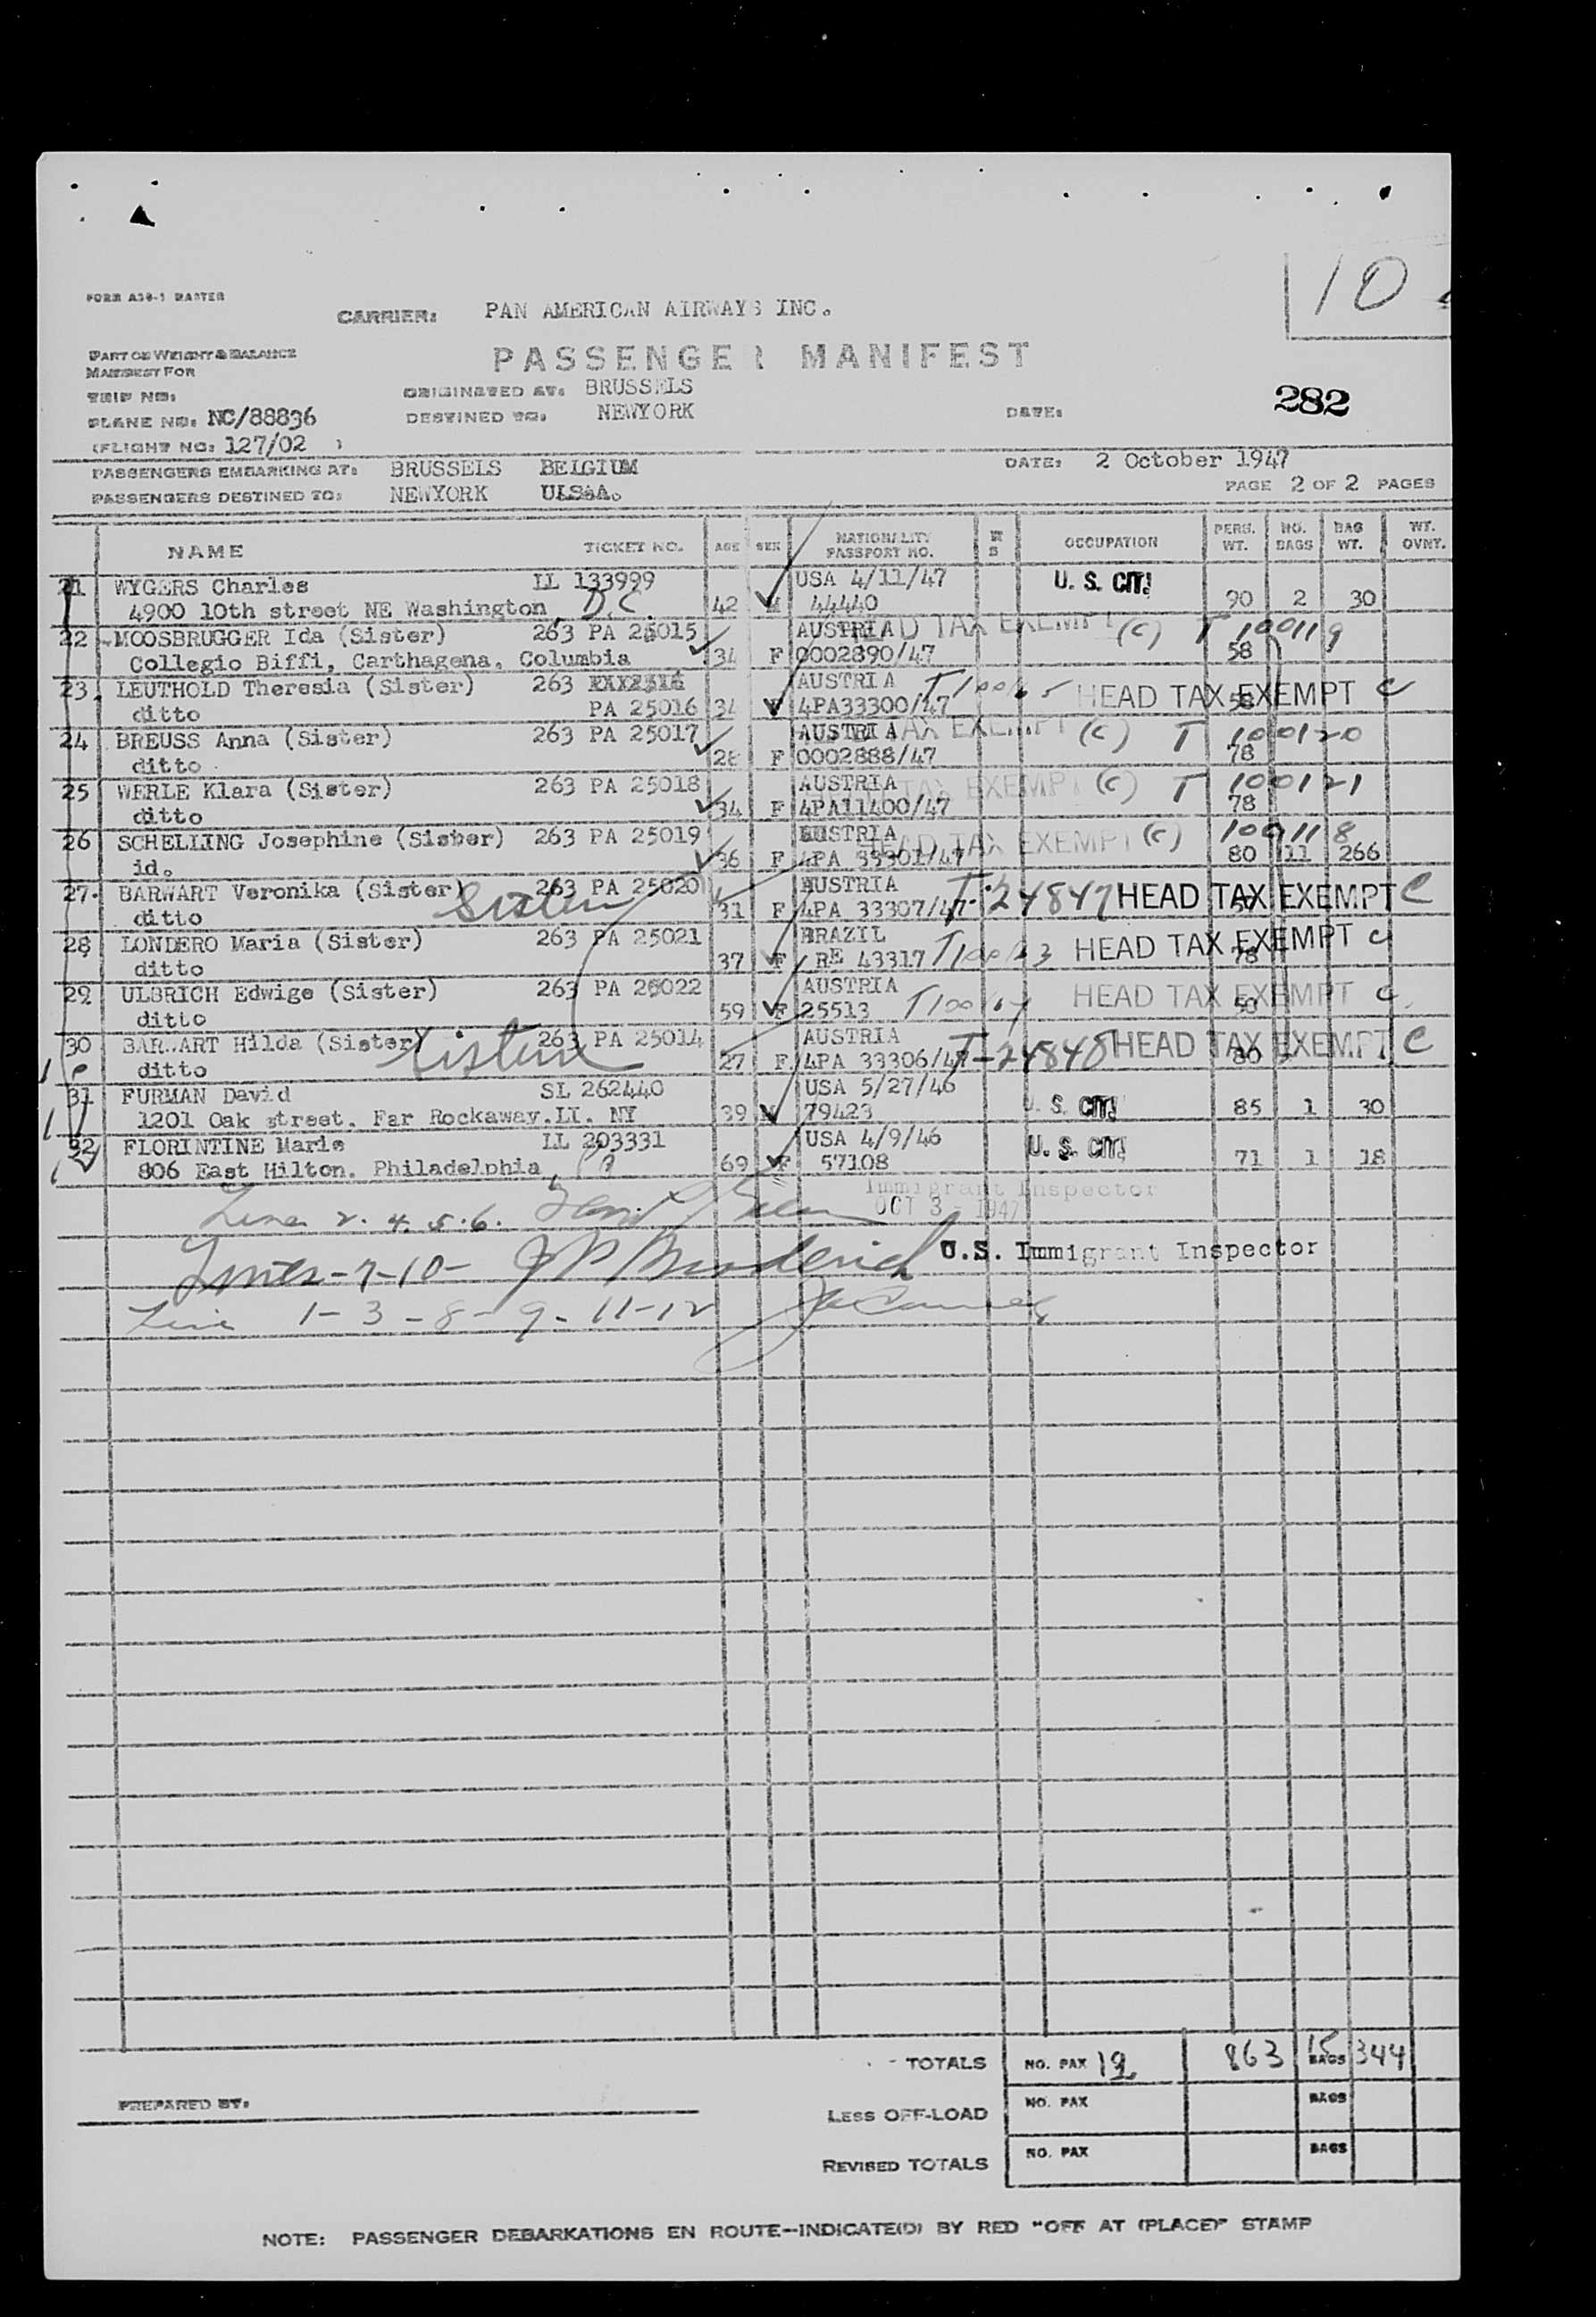 10
FORM A30-1 MASTER
CARRIER: PAN AMERICAN AIRWAYS INC.
PART OF WEIGHT & BALANCE
MANIFEST FOR
PASSENGER MANIFEST
TRIP NO:
ORIGINATED AT: BRUSSELS
282
PLANE NO: NC/88836
DESTINED TO: NEWYORK
DATE:
(FLIGHT NO: 127/02 )
PASSENGERS EMBARKING AT: BRUSSELS BELGIUM
DATE: 2 October 1947
PASSENGERS DESTINED TO: NEWYORK
PAGE 2 OF 2 PAGES
NAME TICKET NO. AGE SEX NATIONALITY PASSPORT NO. OCCUPATION PERS. WT. NO. BAGS BAG WT. WT. OVNT.
21 WYGERS Charles LL 133999 USA 4/11/47 U. S. CIT!
4900 10th street NE Washington D.C. 42 M 44440 90 2 30
22 MOOSBRUGGER Ida (Sister) 263 PA 25015 AUSTRIA HEAD TAX EXEMPT (C) T 100119
Collegio Biffi, Carthagena, Columbia 34 F 0002890/47 58
23. LEUTHOLD Theresia (Sister) 263 AUSTRIA HEAD TAX EXEMPT C
ditto PA 25016 34 F 4PA33300/47
24 BREUSS Anna (Sister) 263 PA 25017 AUSTRIA TAX EXEMPT (C) T 100120
ditto 28 F 0002888/47 78
25 WERLE Klara (Sister) 263 PA 25018 AUSTRIA HEAD TAX EXEMPT (C) T 100121
ditto 34 F 4PA11400/47 78
26 SCHELLING Josephine (Sister) 263 PA 25019 AUSTRIA HEAD TAX EXEMPT (C) 100118
id. 36 F 4PA 33301/47 80 11 266
27. BARWART Veronika (Sister) Sister 263 PA 25020 AUSTRIA T-24847 HEAD TAX EXEMPT C
ditto 31 F 4PA 33307/47
28 LONDERO Maria (Sister) 263 PA 25021 BRAZIL HEAD TAX EXEMPT C
ditto 37 F RE 43317 78
29 ULBRICH Edwige (Sister) 263 PA 25022 AUSTRIA HEAD TAX EXEMPT C
ditto 59 F 25513
30 BARWART Hilda (Sister) Sister 263 PA 25014 AUSTRIA T-24848 HEAD TAX EXEMPT C
ditto 27 F 4PA 33306/47 80
31 FURMAN David SL 262440 USA 5/27/46
1201 Oak street. Far Rockaway.LI. NY 39 M 79423 U. S. CIT! 85 1 30
32 FLORINTINE Marie LL 203331 USA 4/9/46 U. S. CIT!
806 East Hilton. Philadelphia 69 F 57108 71 1 18
Immigrant Inspector
Lines 2. 4. 5. 6.
OCT 3 - 1947
U.S. Immigrant Inspector
Lines - 7-10 - Broderick
Line 1- 3 - 8 - 9 - 11-12
TOTALS NO. PAX 12 863 15 BAGS 344
PREPARED BY:
LESS OFF-LOAD NO. PAX BAGS
REVISED TOTALS NO. PAX BAGS
NOTE: PASSENGER DEBARKATIONS EN ROUTE--INDICATE(D) BY RED "OFF AT (PLACE)" STAMP